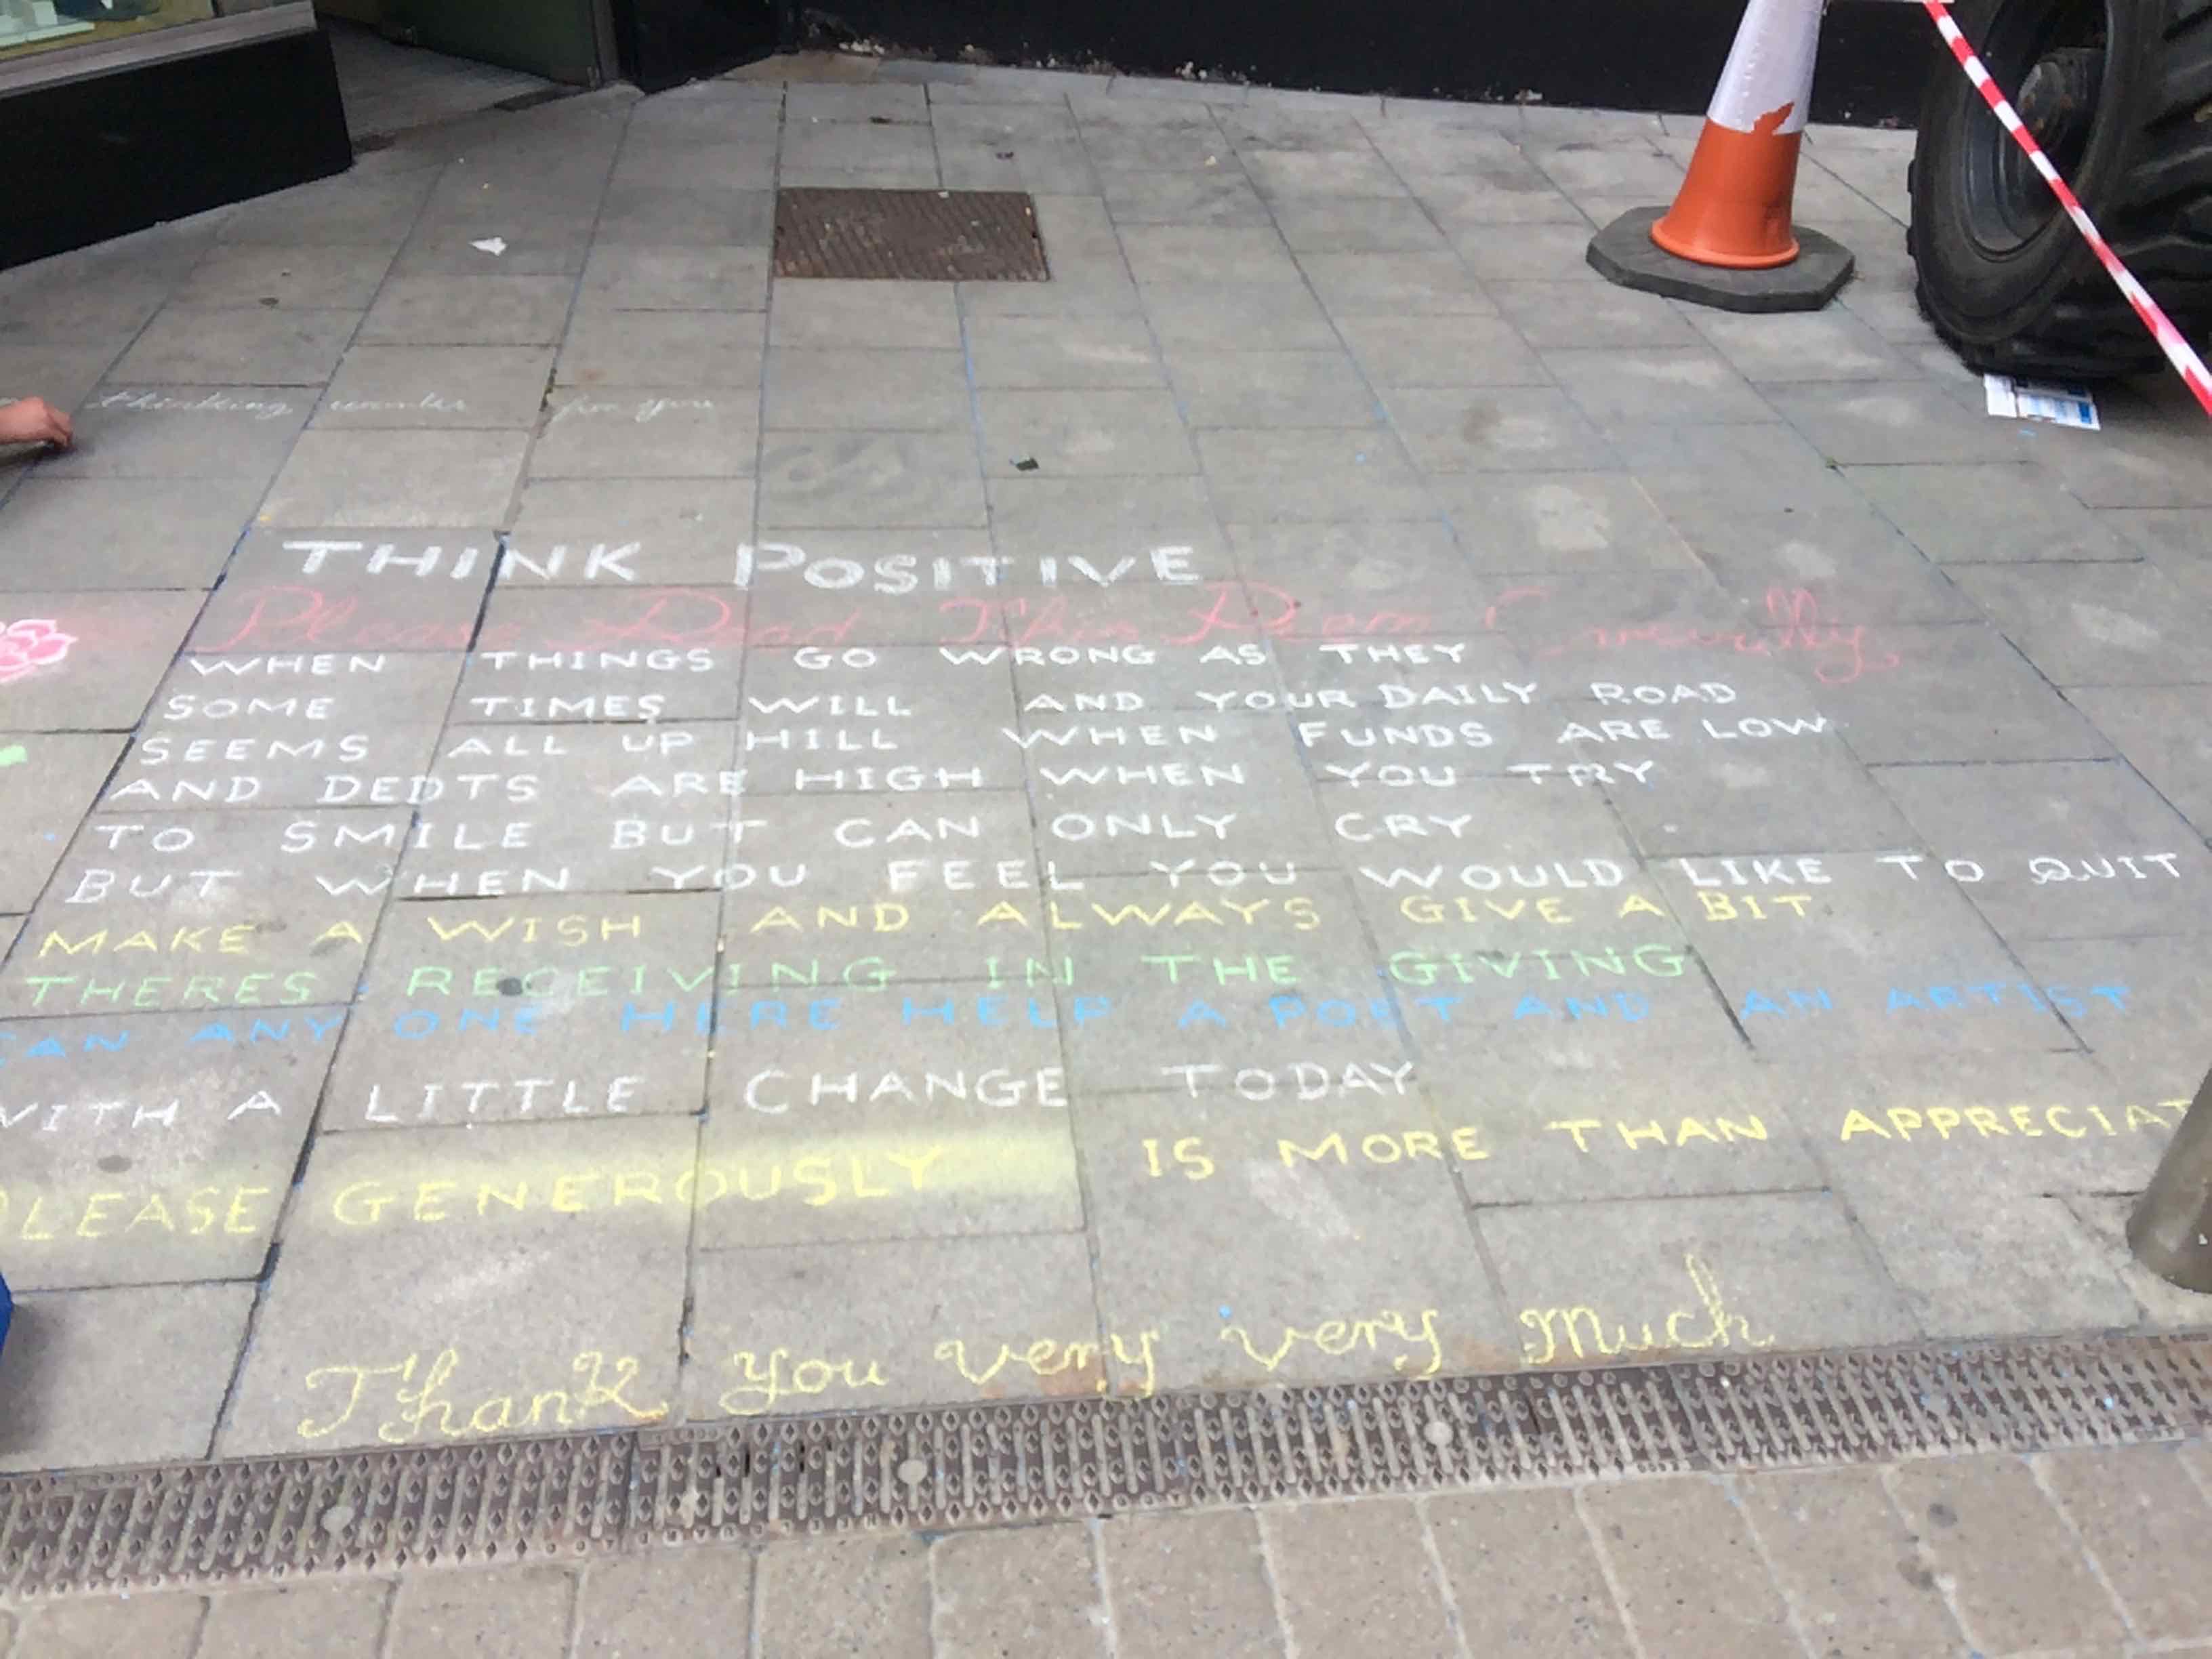 thinking works for you
THINK POSITIVE
Please Read This Poem Carefully
WHEN THINGS GO WRONG AS THEY
SOME TIMES WILL AND YOUR DAILY ROAD
SEEMS ALL UP HILL WHEN FUNDS ARE LOW
AND DEDTS ARE HIGH WHEN YOU TRY
TO SMILE BUT CAN ONLY CRY
BUT WHEN YOU FEEL YOU WOULD LIKE TO QUIT
MAKE A WISH AND ALWAYS GIVE A BIT
THERES RECEIVING IN THE GIVING
CAN ANY ONE HERE HELP A POET AND AN ARTIST
WITH A LITTLE CHANGE TODAY
PLEASE GENEROUSLY IS MORE THAN APPRECIAT
Thank you very very much